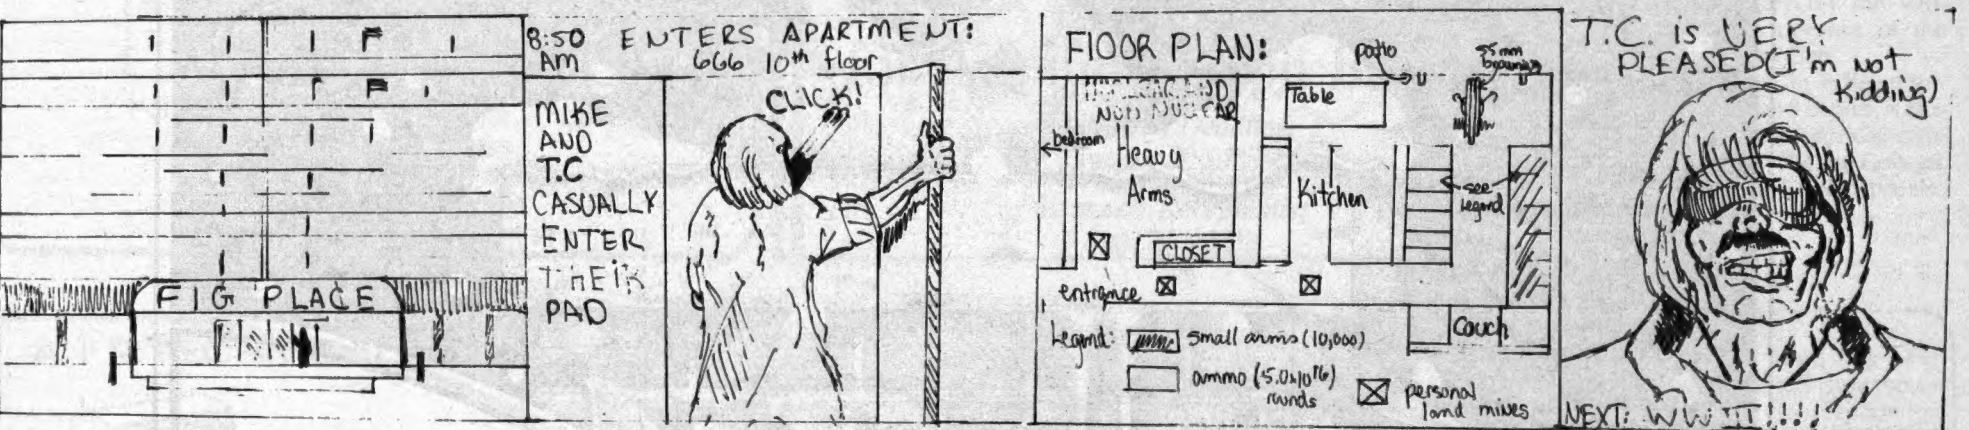 FIG PLACE
8:50 AM
ENTERS APARTMENT:
666 10th floor
MIKE
AND
T.C
CASUALLY
ENTER
THEIR
PAD
CLICK!
FLOOR PLAN:
patio
55mm
NUCLEAR AND
NON NUCLEAR
Heavy
Arms
bedroom
Table
Kitchen
see
Legend
CLOSET
entrance
Couch
Legend:
small arms (10,000)
ammo (5.0x10^16)
rounds
personal
land mines
T.C. is VERY
PLEASED (I'm not
kidding)
NEXT: WW III!!!!